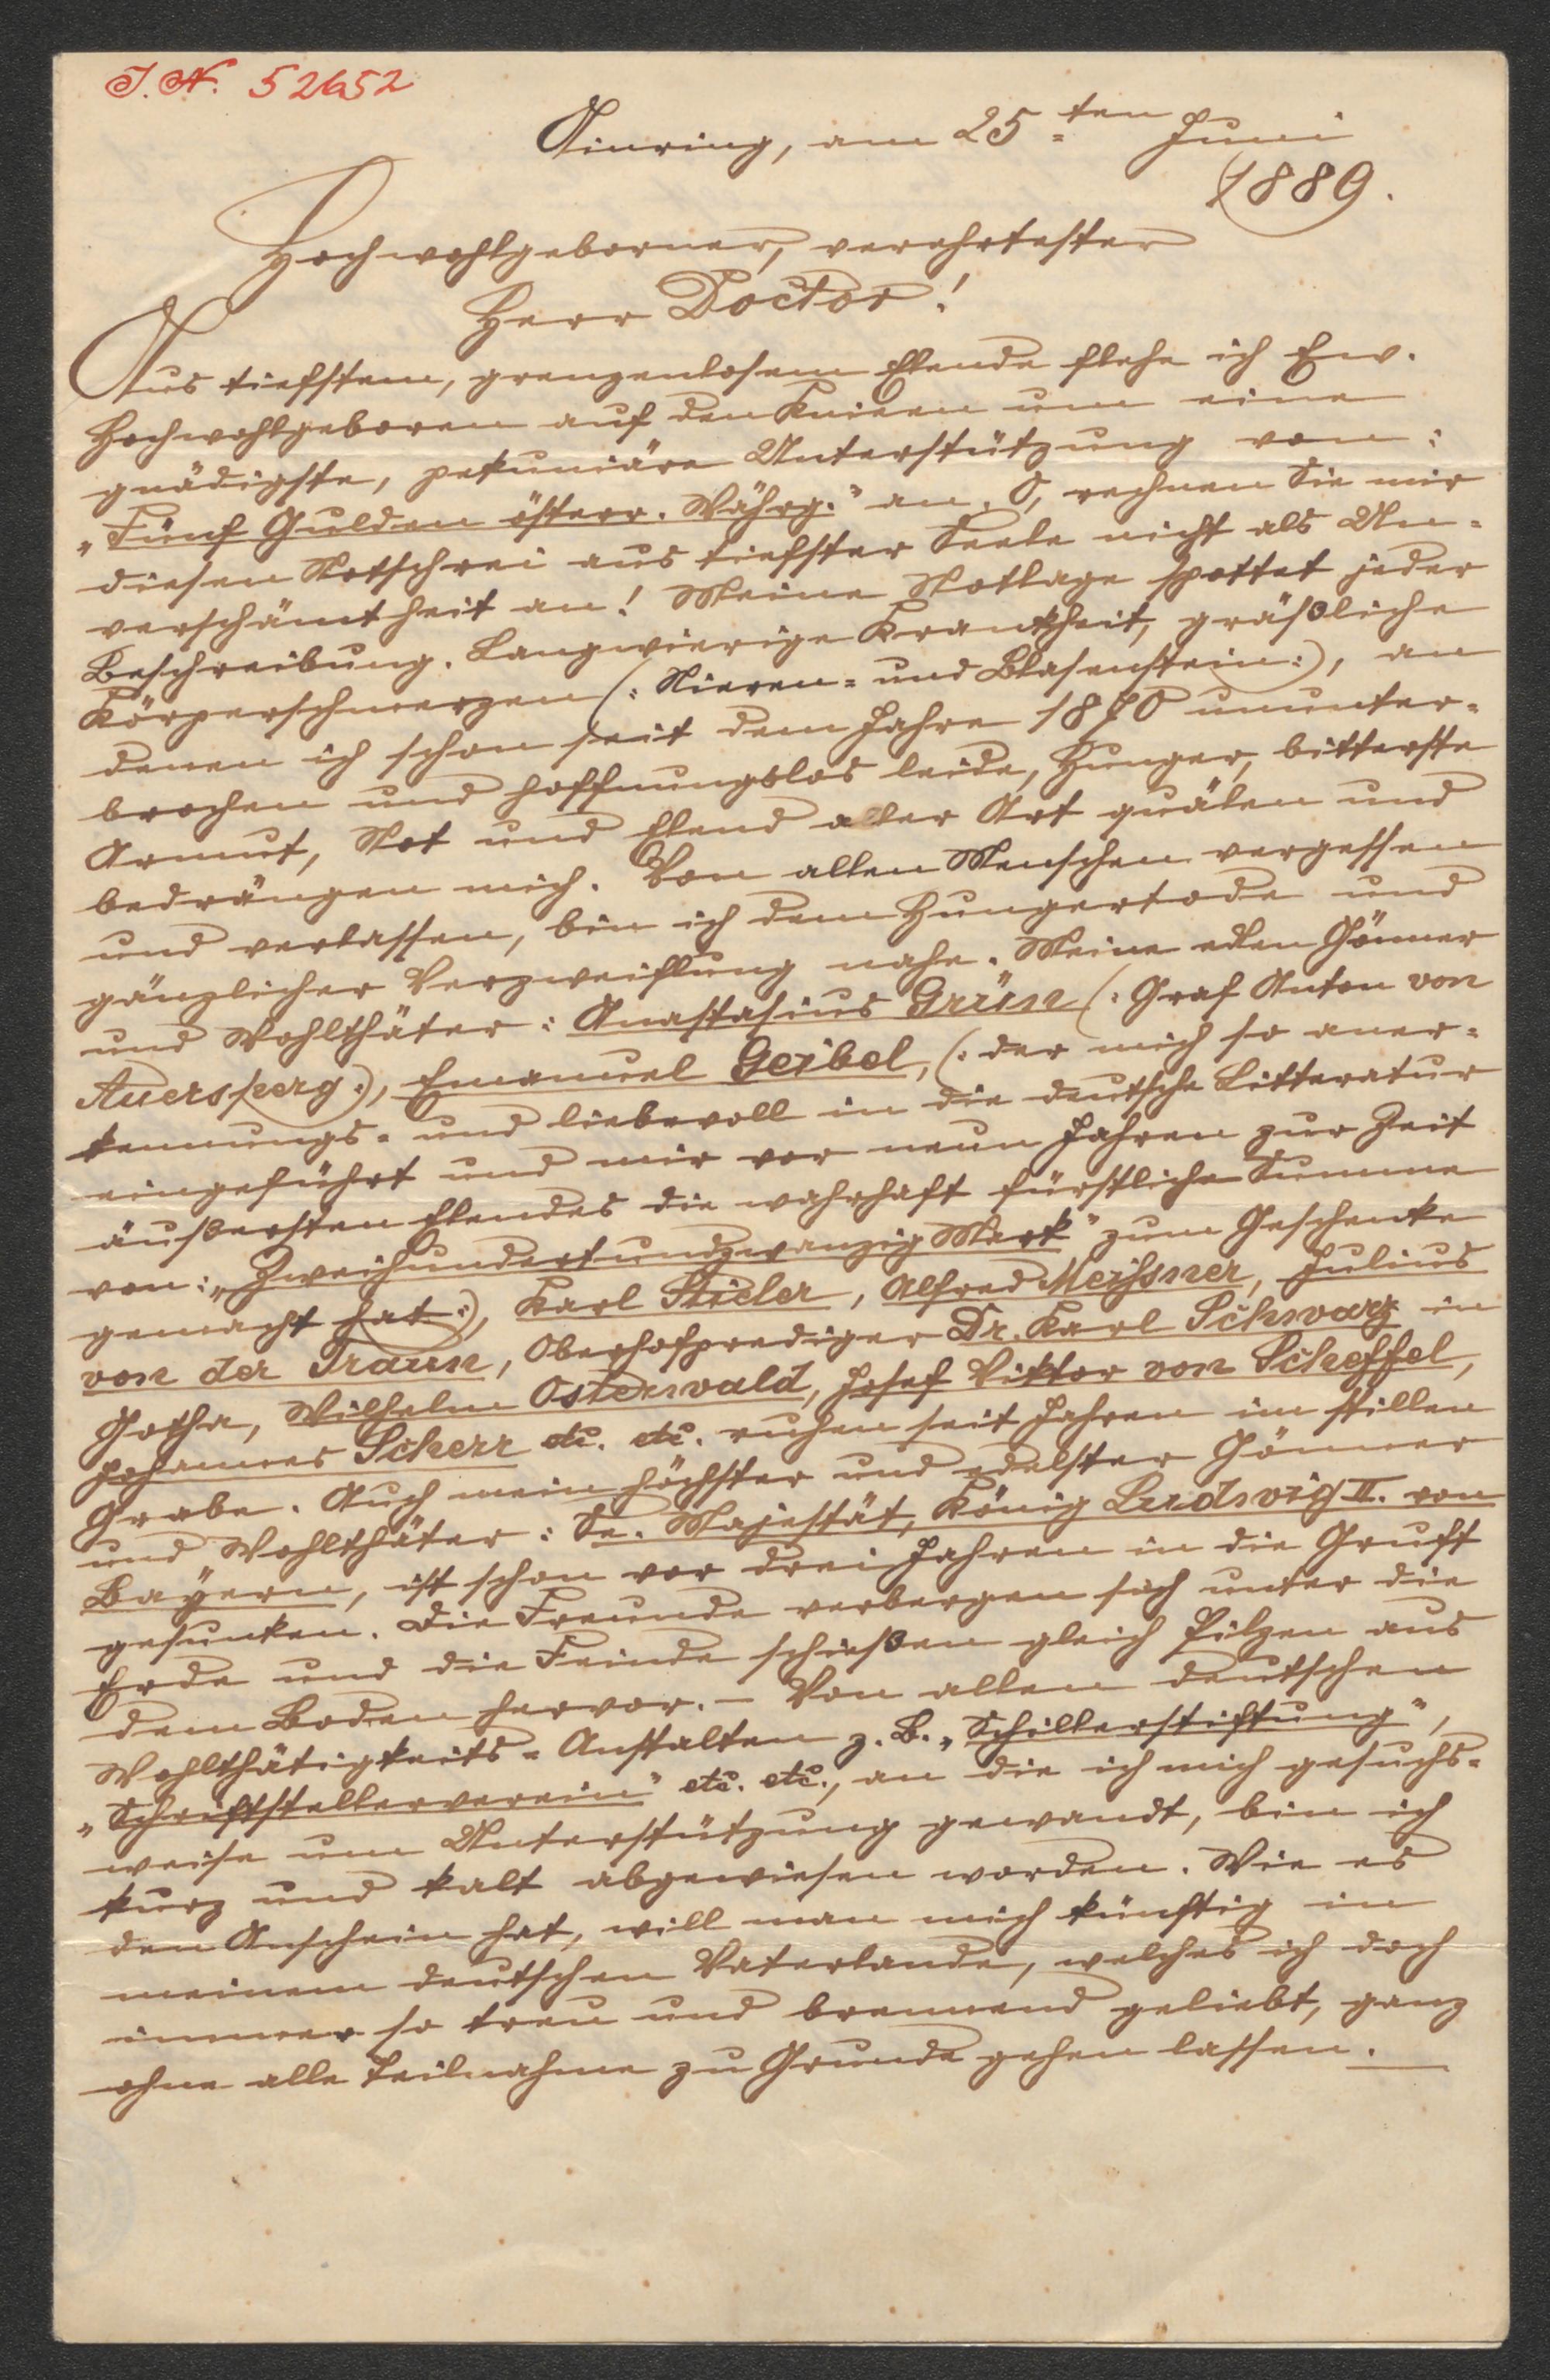 I. N. 52652
Ainring, am 25.ten Juni
1889.
Hochwohlgeborner, verehrtester
Herr Doctor!
Aus tiefstem, grenzenlosem Elende flehe ich Ew.
Hochwohlgeboren auf den Knieen um eine
gnädigste, pekuniäre Unterstützung von:
„Fünf Gulden österr. Währg.“ an. O, rechnen Sie mir
diesen Notschrei aus tiefster Seele nicht als Un-
verschämtheit an! Meine Notlage spottet jeder
Beschreibung. Langwierige Krankheit, gräßliche
Körperschmerzen (: Nieren- und Blasenstein:), an
denen ich schon seit dem Jahre 1870 ununter-
brochen und hoffnungslos leide, Hunger, bitterste
Armut, Not und Elend aller Art quälen und
bedrängen mich. Von allen Menschen vergessen
und verlassen, bin ich dem Hungertode und
gänzlicher Verzweiflung nahe. Meine edlen Gönner
und Wohlthäter: Anastasius Grün (: Graf Anton von
Auersperg:), Emanuel Geibel, (: der mich so aner-
kennungs- und liebevoll in die deutsche Litteratur
eingeführt und mir vor neun Jahren zur Zeit
äußersten Elendes die wahrhaft fürstliche Summe
von: „Zweihundertundzwanzig Mark“ zum Geschenke
gemacht hat:), Karl Stieler, Alfred Meißner, Julius
von der Traun, Oberhofprediger Dr. Karl Schwarz in
Gotha, Wilhelm Osterwald, Josef Viktor von Scheffel,
Johannes Scherr etc. etc. ruhen seit Jahren im stillen
Grabe. Auch mein höchster und edelster Gönner
und Wohlthäter: Se. Majestät, König Ludwig II. von
Bayern, ist schon vor drei Jahren in die Gruft
gesunken. Die Freunde verbergen sich unter die
Erde und die Feinde schießen gleich Pilzen aus
dem Boden hervor. – Von allen deutschen
Wohlthätigkeits-Anstalten z. B. „Schillerstiftung“,
„Schriftstellerverein“ etc. etc., an die ich mich gesuchs-
weise um Unterstützung gewandt, bin ich
kurz und kalt abgewiesen worden. Wie es
den Anschein hat, will man mich künftig in
meinem deutschen Vaterlande, welches ich doch
immer so treu und brennend geliebt, ganz
ohne alle Teilnahme zu Grunde gehen lassen. —